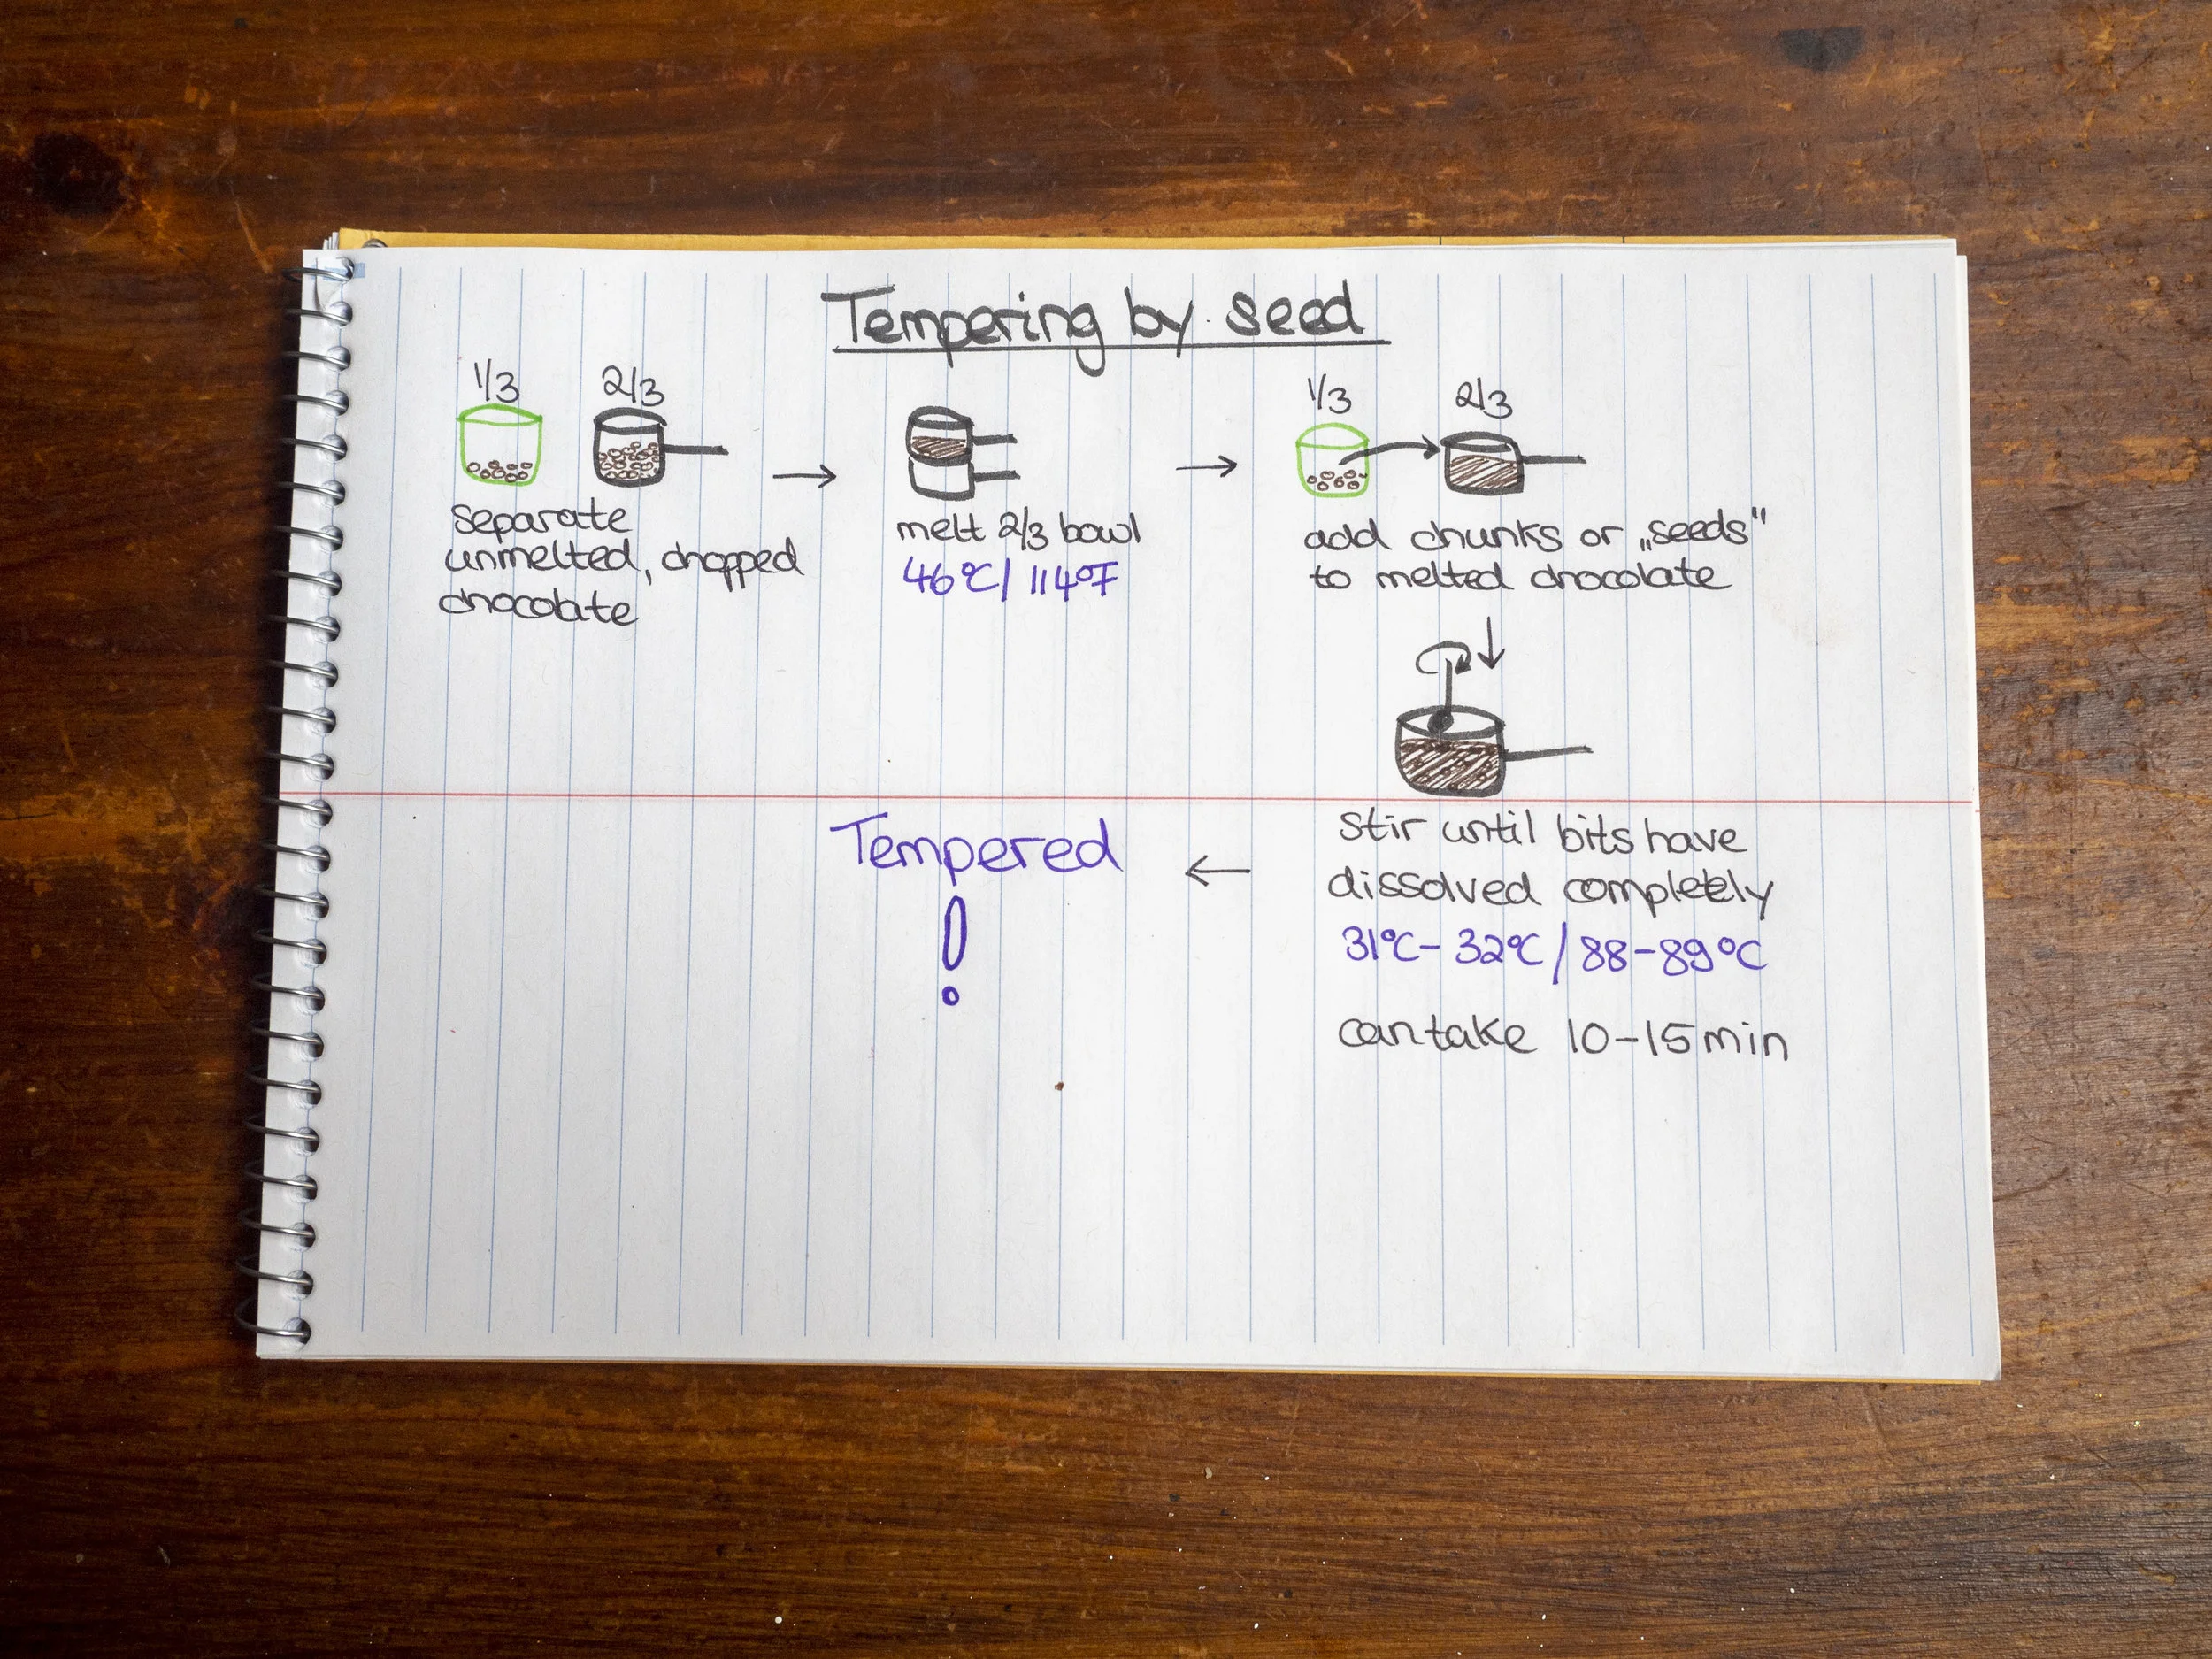 Tempering by seed
1/3 2/3
separate
unmelted, chopped
chocolate
melt 2/3 bowl
46°C/ 114°F
1/3 2/3
add chunks or „seeds"
to melted chocolate
stir until bits have
dissolved completely
31°C- 32°C/ 88-89°C
can take 10-15 min
Tempered
!